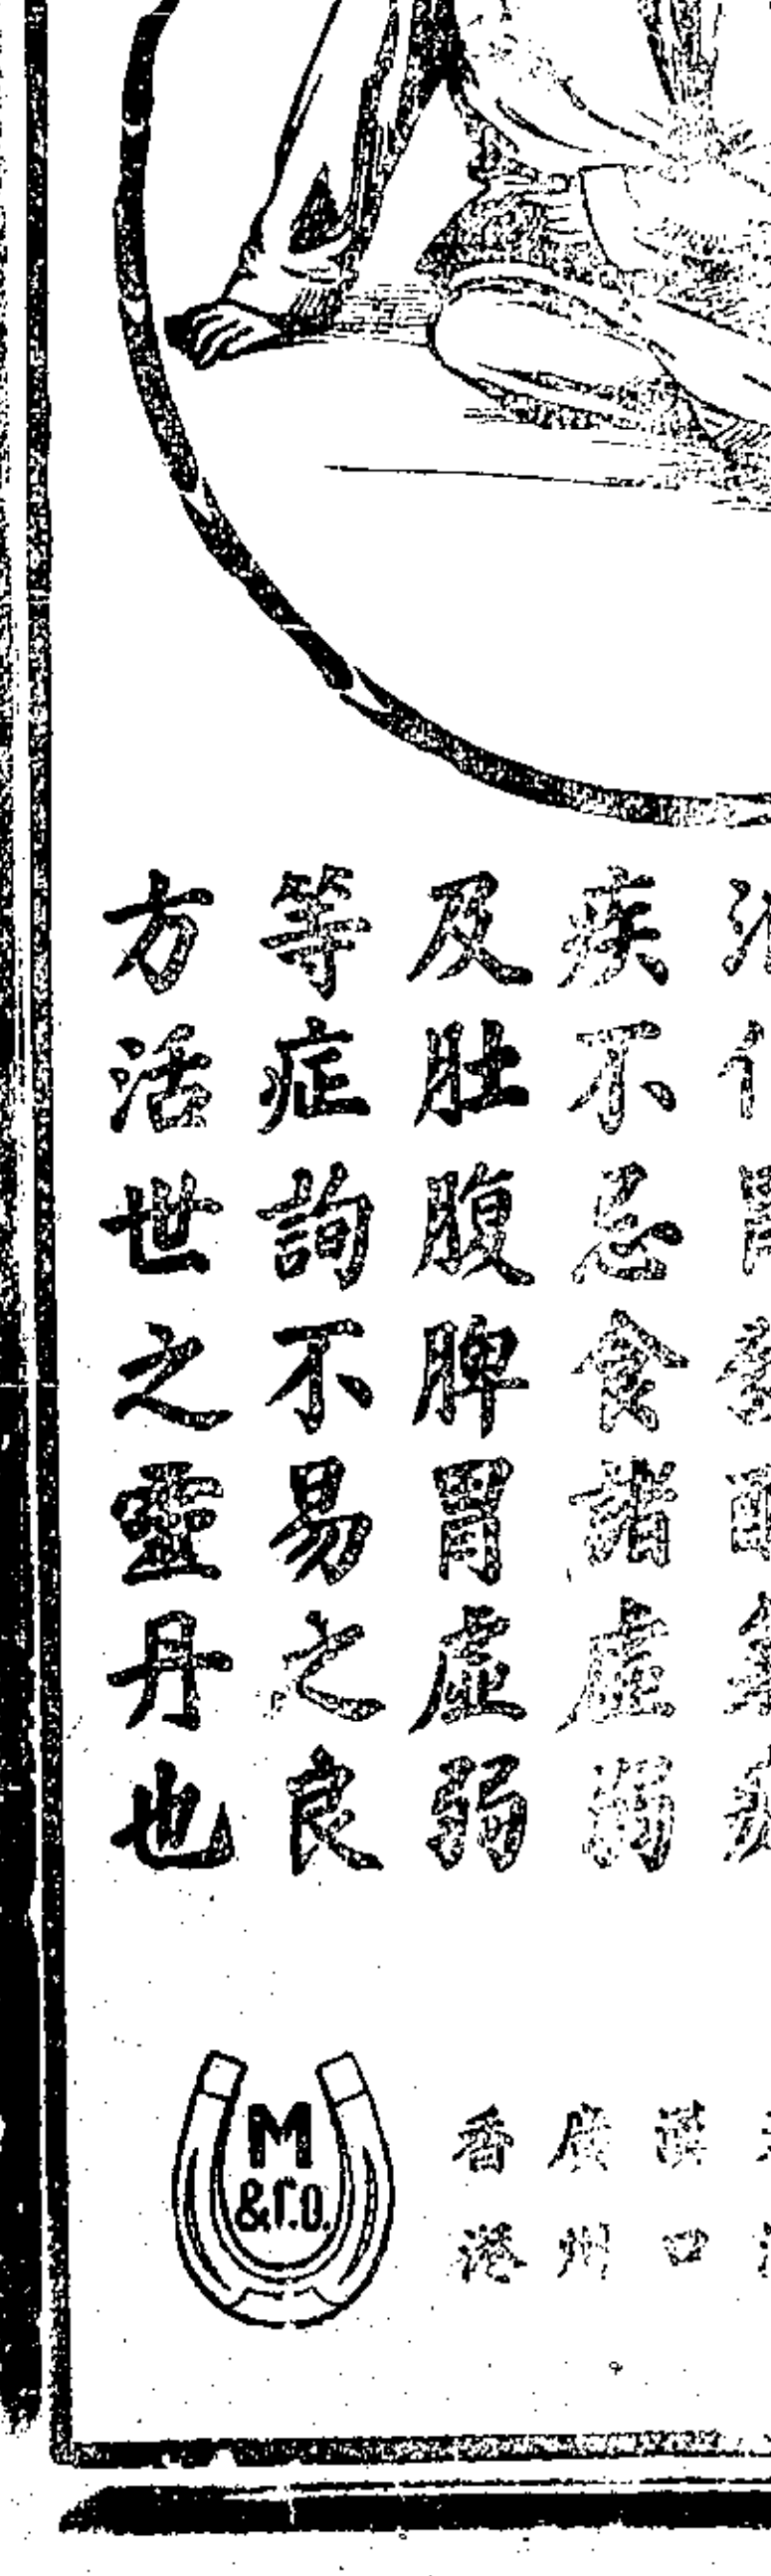 疾不忌食諸虛弱
及肚腹脾胃虛弱
等症詢不易之良
方活世之靈丹也
漢口
廣州
香港
M
&Co.